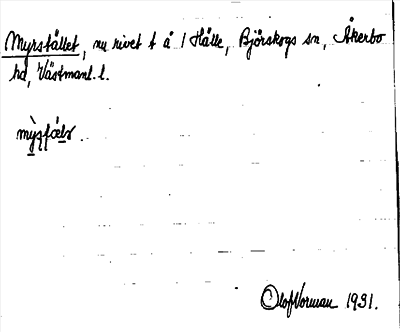 Myrstället, nu rivet t å 1 Hålle, Björskogs sn, Åkerbo
hd, Västmanl. l.
Olof Norman 1931.